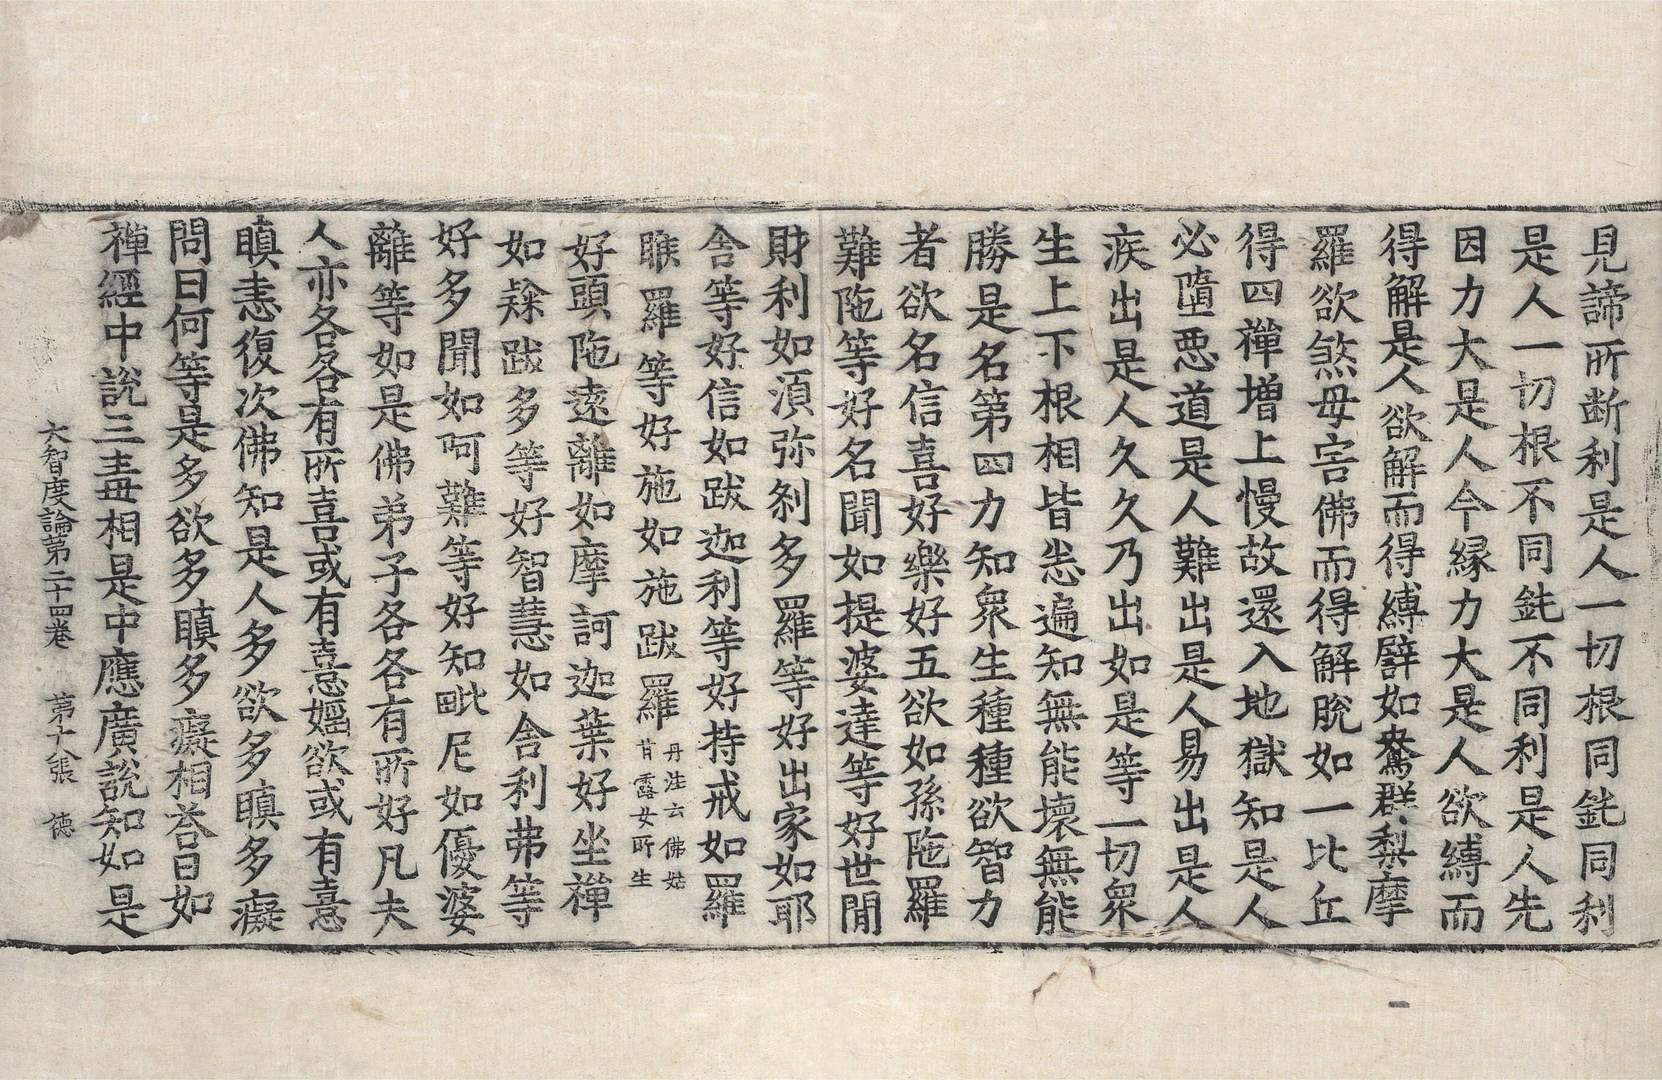 見諦所断利是人一切根同鈍同利
是人一切根不同鈍不同利是人先
因力大是人今緣力大是人欲縛而
得解是人欲解而得縛譬如鴦群梨摩
羅欲煞母害佛而得解脫如一比丘
得四禪增上慢故還入地獄知是人
必墮惡道是人難出是人易出是人
疾出是人久久乃出如是等一切衆
生上下根相皆悉遍知無能壞無能
勝是名第四力知衆生種種欲智力
者欲名信喜好樂好五欲如孫陁羅
難陁等好名聞如提婆達等好世閒
財利如湏弥刹多羅等好出家如耶
舍等好信如跋迦利等好持戒如羅
睺羅等好施如施跋羅丹注云佛姑甘露女所生
好頭陁遠離如摩訶迦葉好坐禪
如𥠖跋多等好智慧如舍利弗等
好多聞如阿難等好知毗尼如優婆
離等如是佛弟子各各有所好凡夫
人亦各各有所喜或有憙婬欲或有憙
瞋恚復次佛知是人多欲多瞋多癡
問曰何等是多欲多瞋多癡相荅曰如
禪經中說三毒相是中應廣說知如是
大智度論第二十四卷 第十張 德